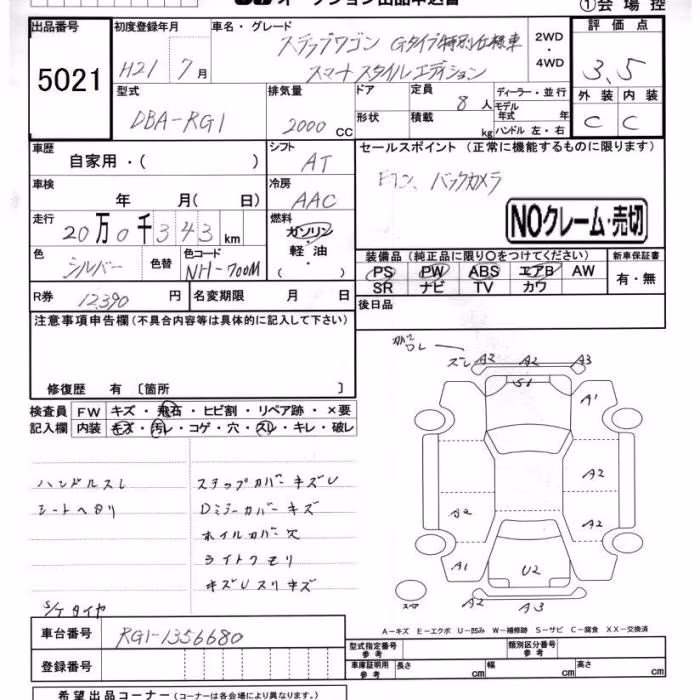 オークション出品申込書
①会場控
出品番号 初度登録年月 車名・グレード 評価点
5021 H21 7月 ステップワゴン Gタイプ特別仕様車 2WD・4WD 3.5
スマートスタイルエディション
型式 排気量 ドア 定員 ディーラー・並行 外装 内装
DBA-RG1 2000cc 8人 モデル年式 年 C C
形状 積載 kg ハンドル 左・右
車歴 シフト セールスポイント (正常に機能するものに限ります)
自家用・( ) AT
車検 冷房 バックカメラ
年 月( 日) AAC
走行 燃料 NOクレーム・売切
20万0千343km ガソリン・軽油・( )
色 色替 色コード 装備品 (純正品に限り○をつけてください) 新車保証書
シルバー NH-700M PS PW ABS エアB AW 有・無
SR ナビ TV カワ
R券 12,390円 名変期限 月 日 後日品
注意事項申告欄(不具合内容等は具体的に記入して下さい)
修復歴 有 [箇所 ]
検査員 FW キズ・飛石・ヒビ割・リペア跡・×要
記入欄 内装 キズ・汚レ・コゲ・穴・スレ・キレ・破レ
ズレ A2 A2 A3
S1
A1
ハンドルスレ ステップカバーキズU
シートヘタリ Dミラーカバーキズ
ホイルカバー穴
ライトクモリ
キズUスリキズ
A2
A2 A2
A1 U2
A2 A3
S/Tタイヤ
A-キズ E-エクボ U-凹み W-補修跡 S-サビ C-腐食 XX-交換済
車台番号 RG1-1356680
型式指定番号 参考 類別区分番号 参考
登録番号 車庫証明用 参考 長さ cm 幅 cm 高さ cm
希望出品コーナー (コーナーは各会場により異なります。)